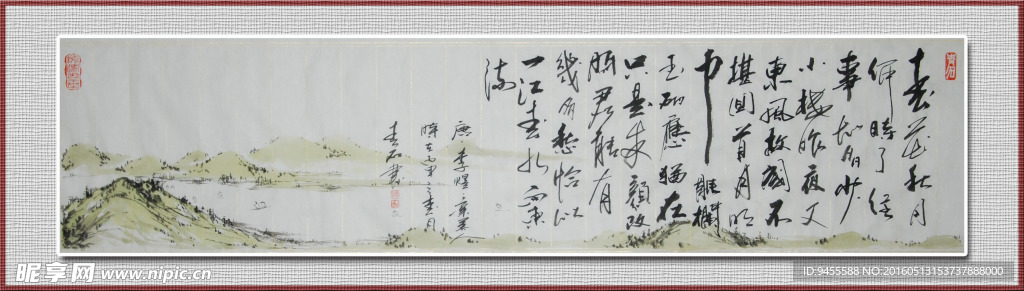 春花秋月
何時了往
事知多少
小樓昨夜又
東風故國不
堪回首月明
中雕欄
玉砌應猶在
只是朱顏改
問君能有
幾多愁恰似
一江春水向東
流
唐李煜虞美人
時在丙申之春月
春石書
昵享网 www.nipic.cn
ID:9455588 NO:20160513153737888000